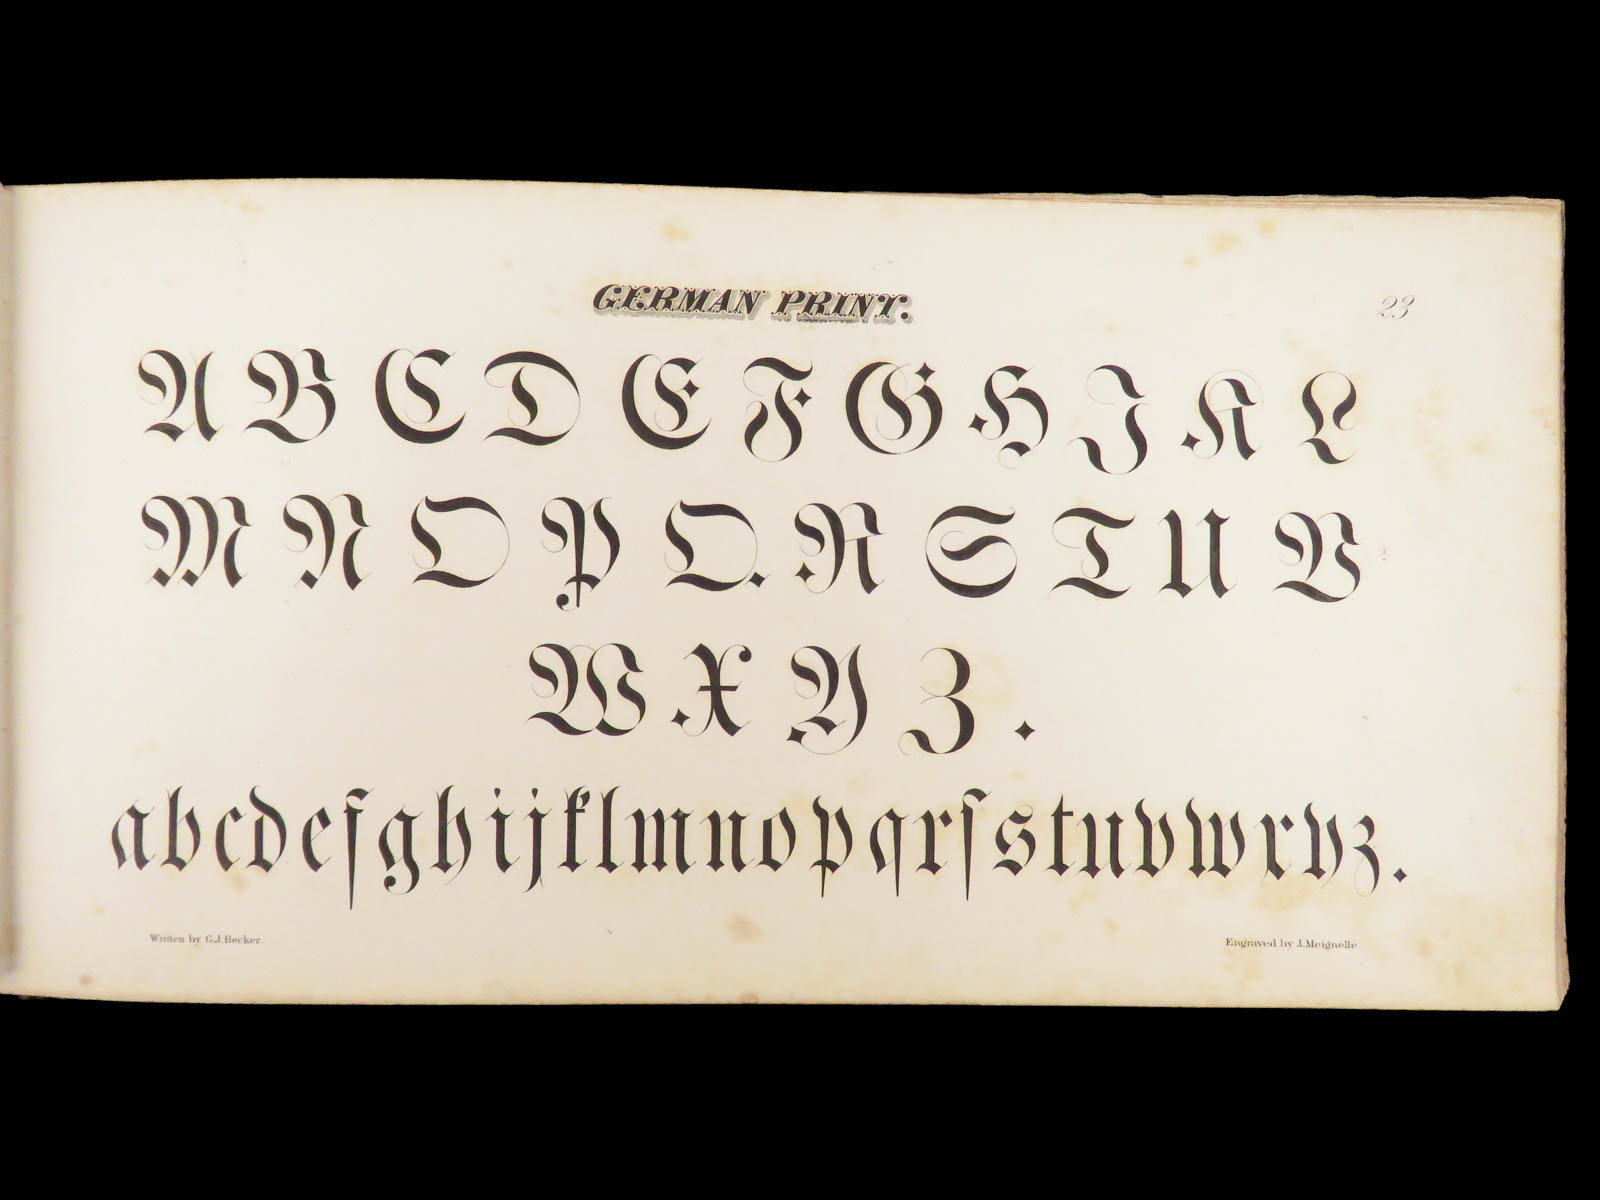 GERMAN PRINT.
23
A B C D E F G H I K L
M N O P Q R S T U V
W X Y Z .
a b c d e f g h i j k l m n o p q r ſ s t u v w x y z .
Written by G.J. Becker.
Engraved by J. Meignelle.